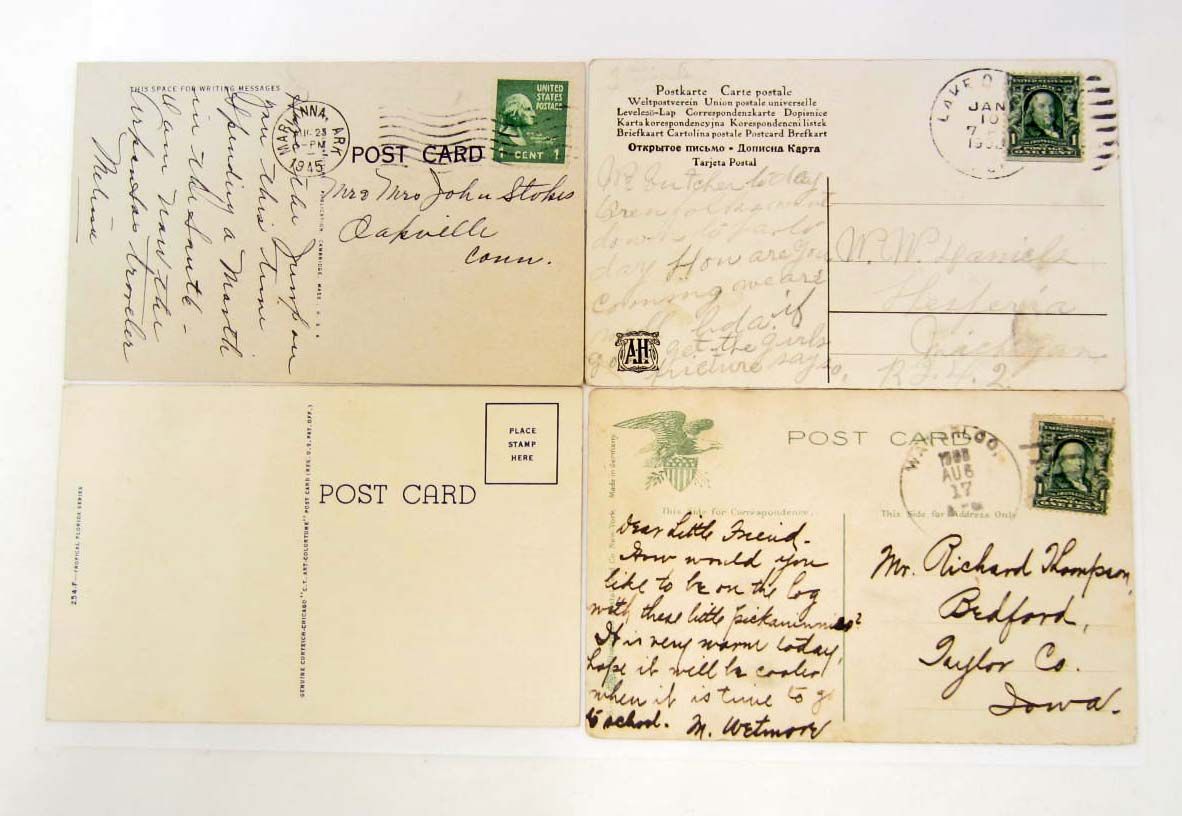 THIS SPACE FOR WRITING MESSAGES
the Jump on
you this time
Spending a Month
in the South -
am now the
Arkansas traveler
Melissa
MARIANNA, ARK
PM
1945
UNITED
STATES
POSTAGE
1 CENT 1
POST CARD
Mr & Mrs John Stokes
Oakville
Conn.
Postkarte Carte postale
Weltpostverein Union postale universelle
Levelező-Lap Correspondenzkarte Dopisnice
Karta korespondencyjna Korespondencni listek
Briefkaart Cartolina postale Postcard Brefkort
Открытое письмо - Дописна Карта
Tarjeta Postal
LAKE
JAN
10
today
day How are you
coming we are
if
get the girls
picture says
A.H.
W. W. Daniels
Hesperia
Michigan
254-F—TROPICAL FLORIDA SERIES
GENUINE CURTEICH-CHICAGO "C.T. ART-COLORTONE" POST CARD (REG. U.S. PAT. OFF.)
PLACE
STAMP
HERE
POST CARD
Made in Germany.
New York.
POST CARD
WATERLOO,
AUG
17
This Side for Correspondence.
This Side for Address Only
Dear Little Friend.
How would you
like to be on the log
with these little pickaninnies?
It is very warm today,
hope it will be cooler
when it is time to go
to school. M. Wetmore
Mr. Richard Thompson,
Bedford,
Taylor Co.
Iowa.